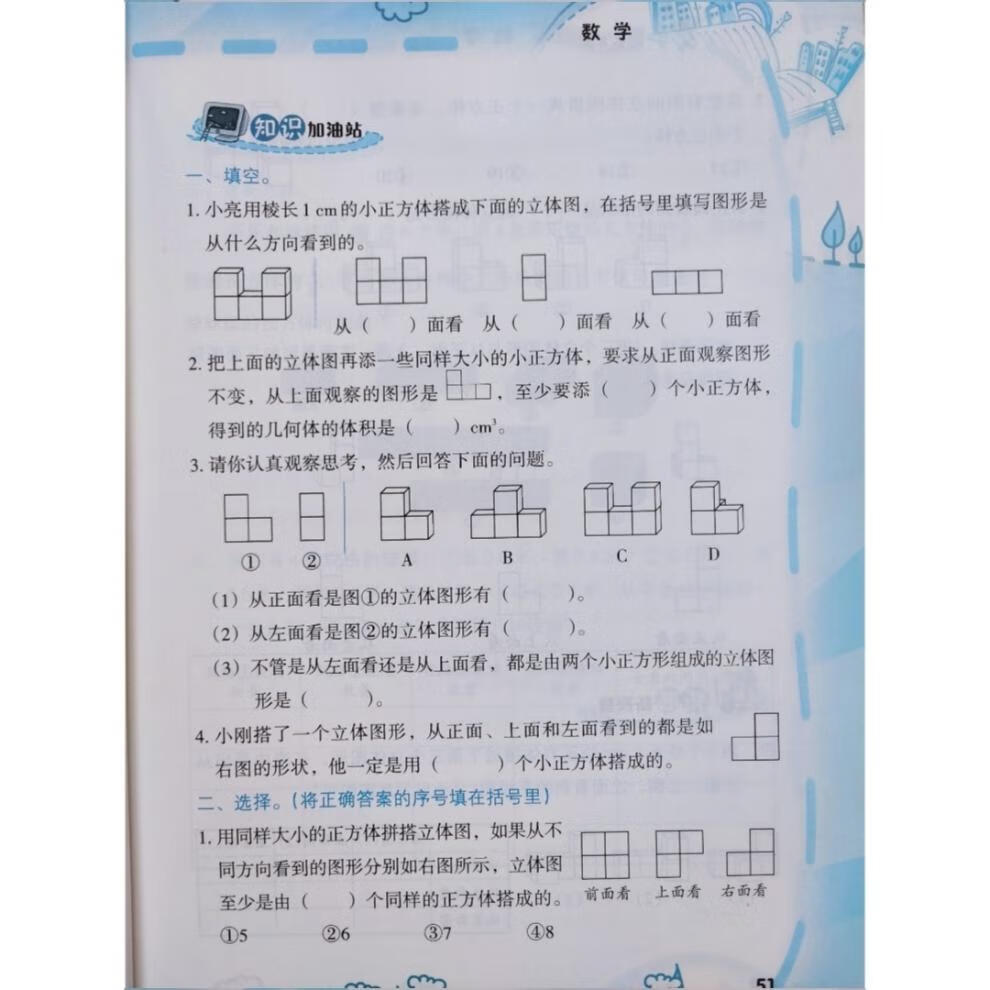 数学
知识加油站
一、填空。
1. 小亮用棱长1 cm的小正方体搭成下面的立体图，在括号里填写图形是
从什么方向看到的。
从（　　）面看　从（　　）面看　从（　　）面看
2. 把上面的立体图再添一些同样大小的小正方体，要求从正面观察图形
不变，从上面观察的图形是　　，至少要添（　　）个小正方体，
得到的几何体的体积是（　　）cm³。
3. 请你认真观察思考，然后回答下面的问题。
①　②　A　B　C　D
（1）从正面看是图①的立体图形有（　　）。
（2）从左面看是图②的立体图形有（　　）。
（3）不管是从左面看还是从上面看，都是由两个小正方形组成的立体图
形是（　　）。
4. 小刚搭了一个立体图形，从正面、上面和左面看到的都是如
右图的形状，他一定是用（　　）个小正方体搭成的。
二、选择。（将正确答案的序号填在括号里）
1. 用同样大小的正方体拼搭立体图，如果从不
同方向看到的图形分别如右图所示，立体图
至少是由（　　）个同样的正方体搭成的。
前面看　上面看　右面看
①5　②6　③7　④8
51